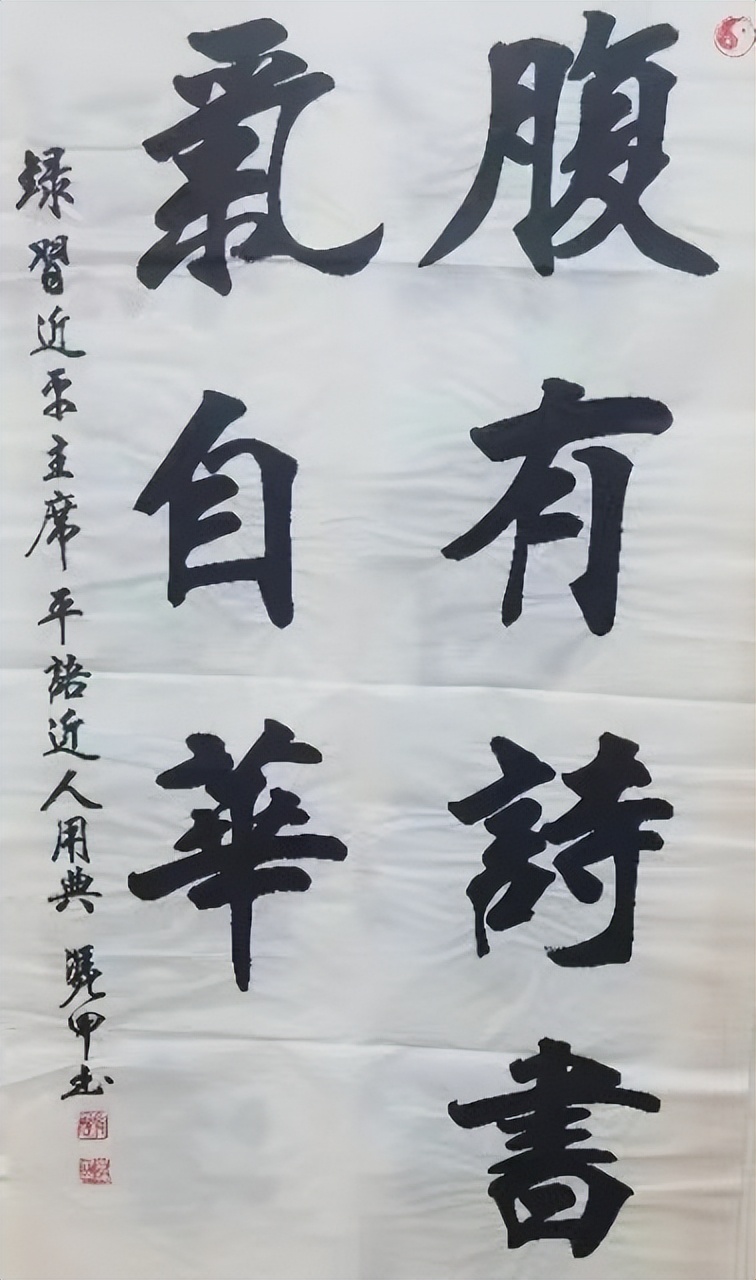 腹有詩書
氣自華
録習近平主席平語近人用典 甲書